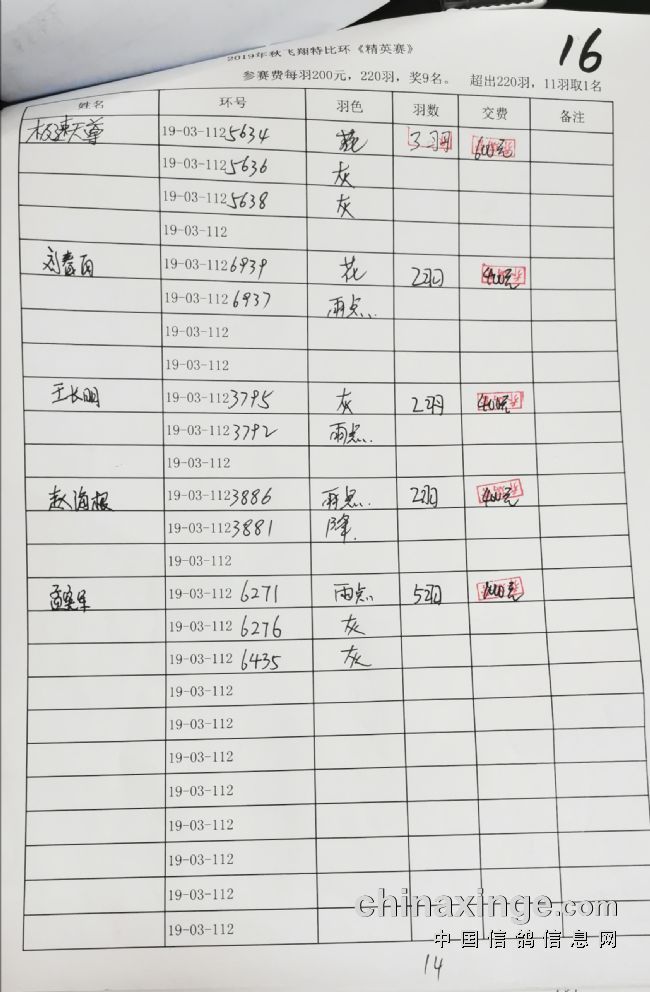 2019年秋飞翔特比环《精英赛》
16
参赛费每羽200元，220羽，奖9名。 超出220羽，11羽取1名
姓名 环号 羽色 羽数 交费 备注
极速天尊 19-03-1125634 花 3羽 600元
19-03-1125636 灰
19-03-1125638 灰
19-03-112
19-03-1126939 花 2羽 400元
19-03-1126937 雨点
19-03-112
19-03-112
王长明 19-03-1123795 灰 2羽 400元
19-03-1123792 雨点
19-03-112
赵海根 19-03-1123886 雨点 2羽 400元
19-03-1123881 降
19-03-112
19-03-1126271 雨点 5羽 1000元
19-03-1126276 灰
19-03-1126435 灰
19-03-112
19-03-112
19-03-112
19-03-112
19-03-112
19-03-112
19-03-112
19-03-112
chinaxinge.com
中国信鸽信息网
14